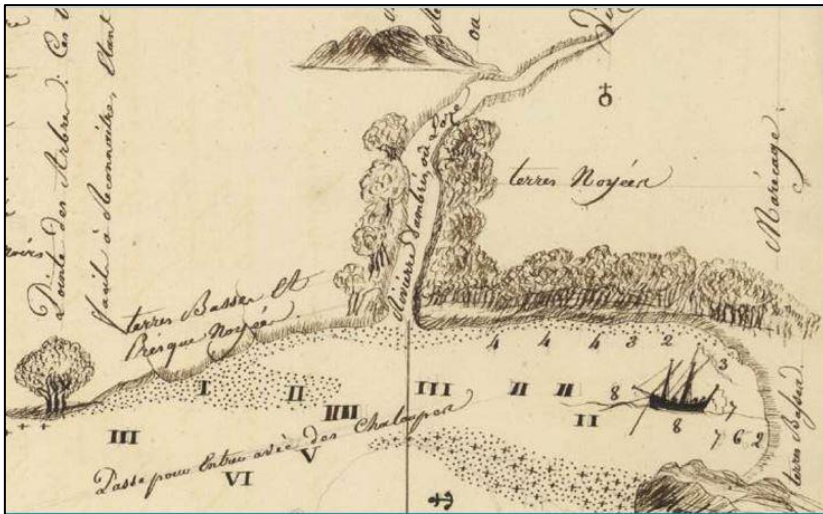 Pointe des Arbres. Ces
facile à Reconnoitre, Etant
ou
terres Basses Et
Presque Noyées.
Rivierre d'ambris, ou d'ore
terres Noyées
Marécage
terres Basses
4 4 4 3 2
3
I II III II II 8 7
IIII II 8 7 6 2
III
Passe pour Entrer avec des Chaloupes
V
VI